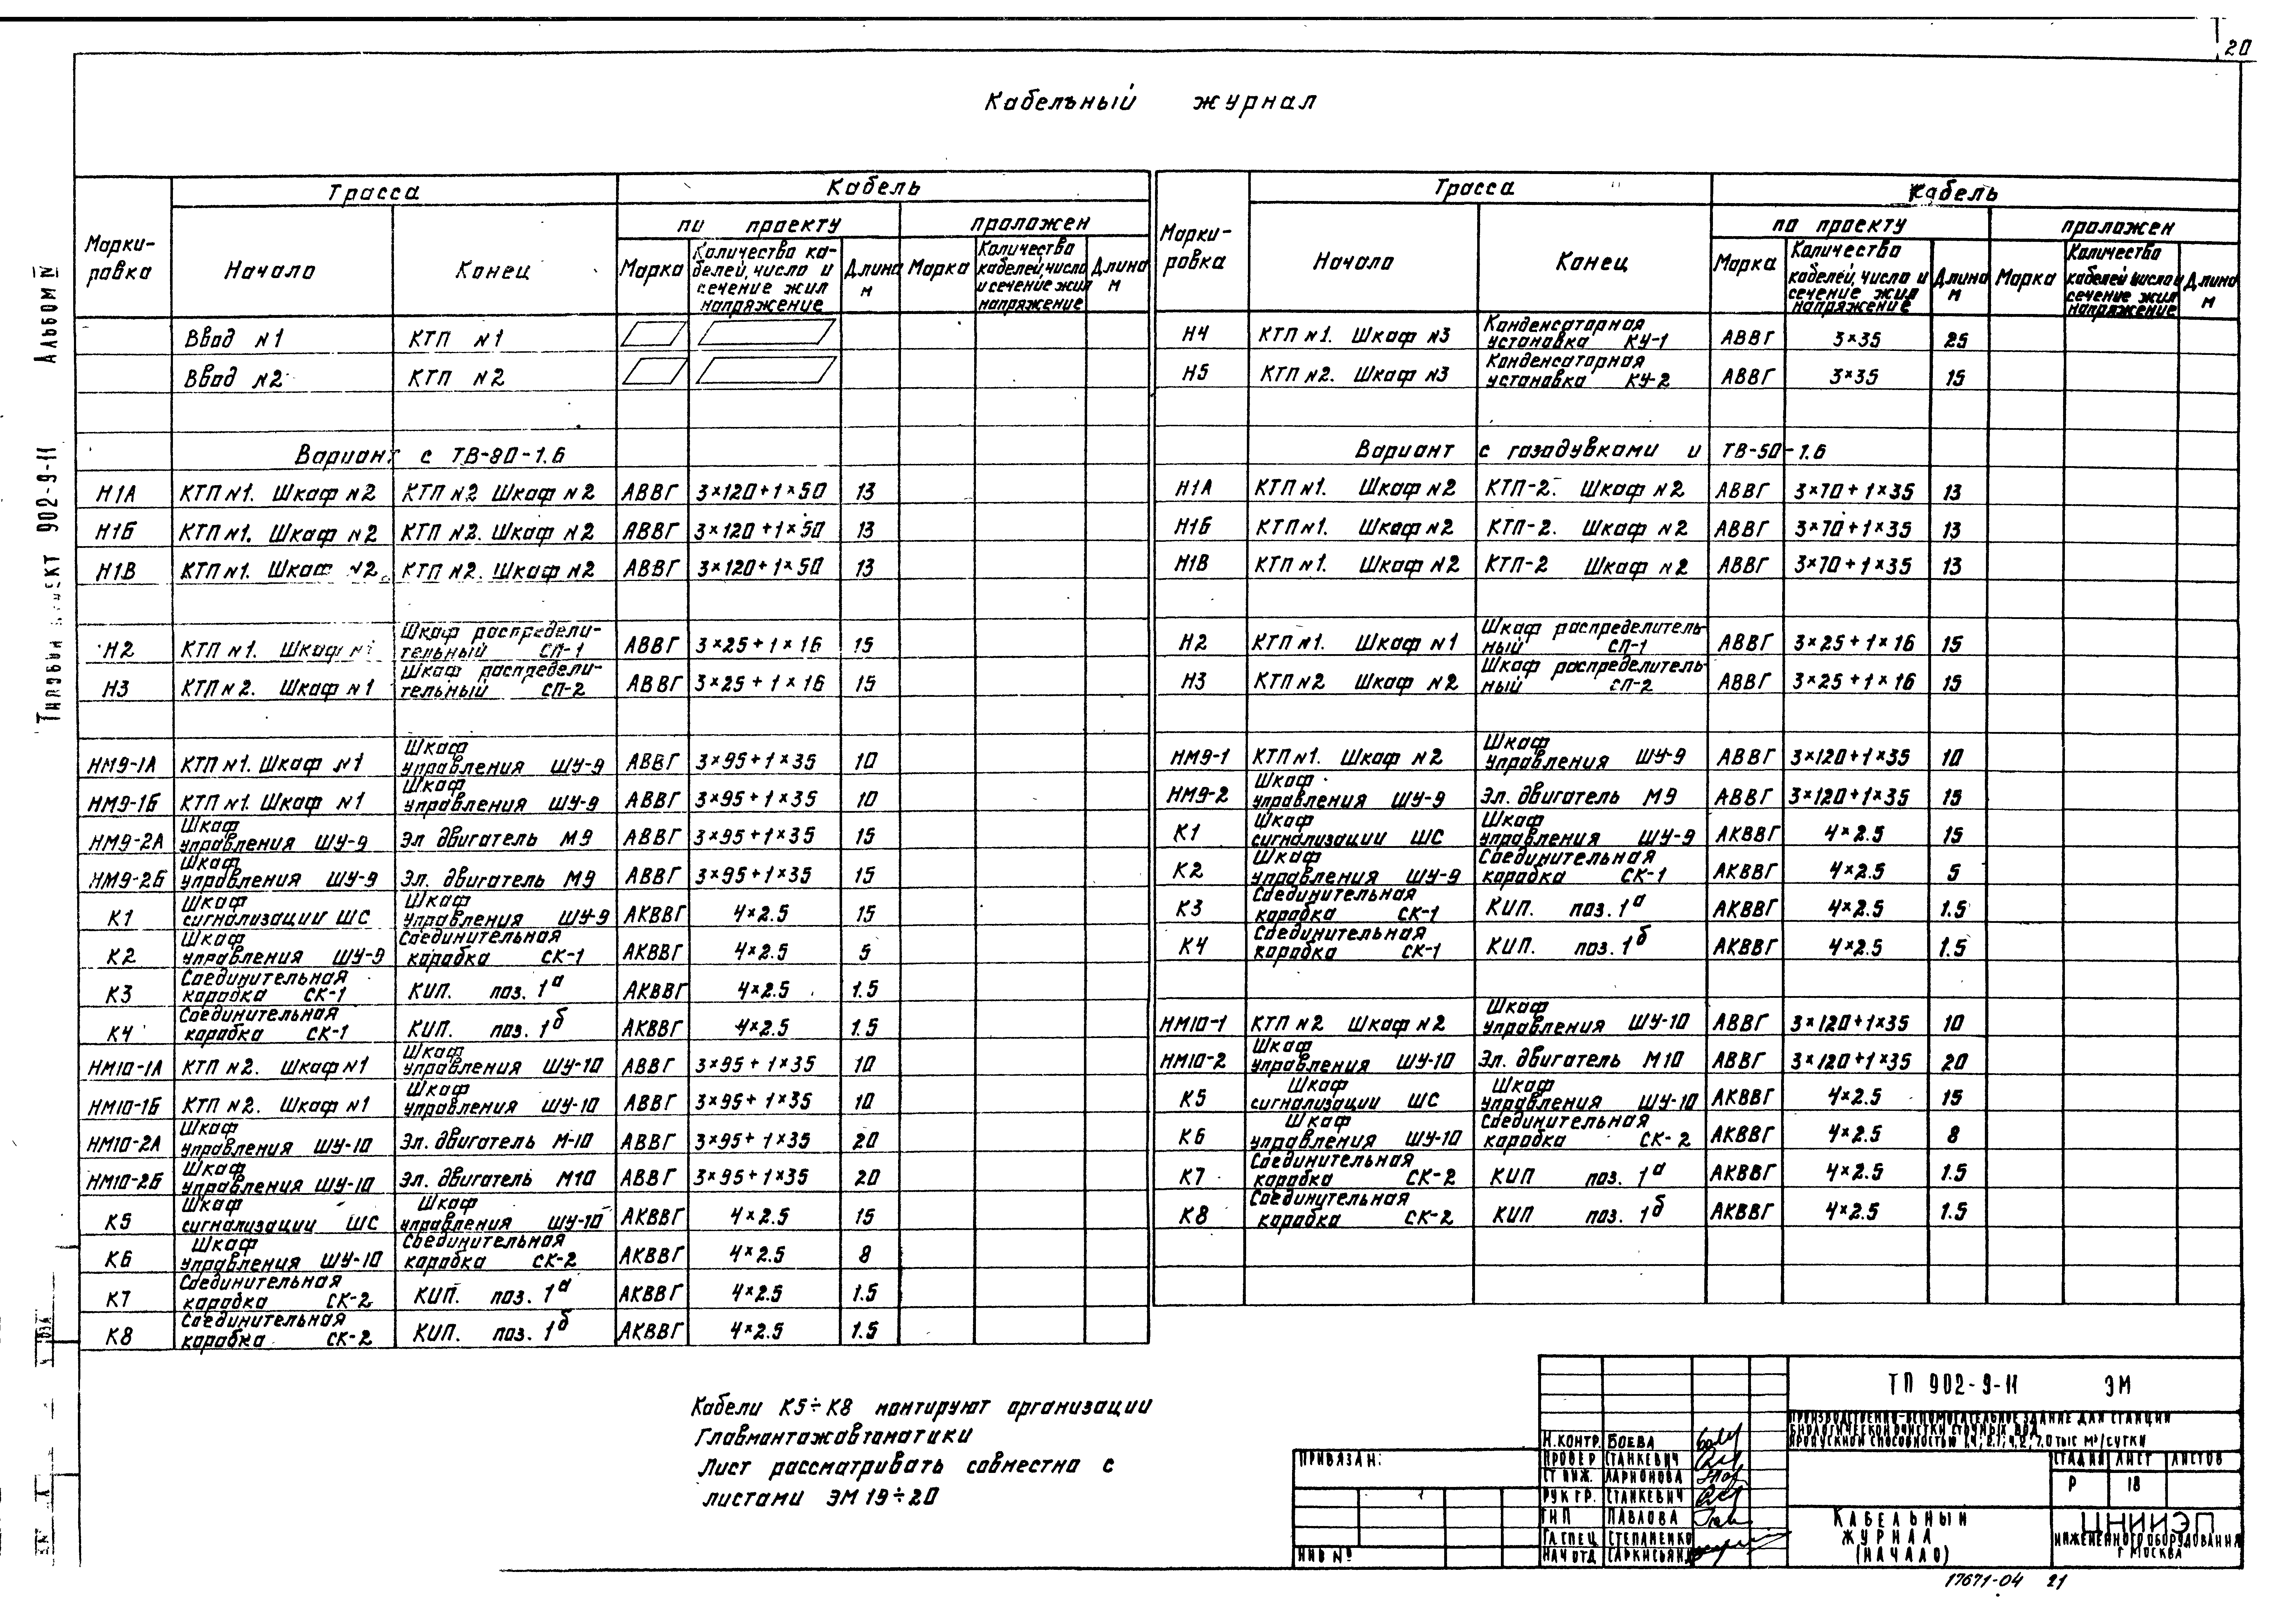 20
Кабельный журнал
Марки-
ровка
Трасса
Кабель
по проекту
проложен
Начало
Конец
Марка
Количество ка-
белей, число и
сечение жил
напряжение
Длина
м
Марка
Количество
кабелей, число
и сечение жил
напряжение
Длина
м
Ввод №1 КТП №1
Ввод №2 КТП №2
Вариант с ТВ-80-1.6
Н1А КТП №1. Шкаф №2 КТП №2 Шкаф №2 АВВГ 3×120+1×50 13
Н1Б КТП №1. Шкаф №2 КТП №2. Шкаф №2 АВВГ 3×120+1×50 13
Н1В КТП №1. Шкаф №2 КТП №2. Шкаф №2 АВВГ 3×120+1×50 13
Н2 КТП №1. Шкаф Шкаф распредели-
тельный СП-1 АВВГ 3×25+1×16 15
Н3 КТП №2. Шкаф №1 Шкаф распредели-
тельный СП-2 АВВГ 3×25+1×16 15
НМ9-1А КТП №1. Шкаф №1 Шкаф
управления ШУ-9 АВВГ 3×95+1×35 10
НМ9-1Б КТП №1. Шкаф №1 Шкаф
управления ШУ-9 АВВГ 3×95+1×35 10
НМ9-2А Шкаф
управления ШУ-9 Эл двигатель М9 АВВГ 3×95+1×35 15
НМ9-2Б Шкаф
управления ШУ-9 Эл. двигатель М9 АВВГ 3×95+1×35 15
К1 Шкаф
сигнализации ШС Шкаф
управления ШУ-9 АКВВГ 4×2.5 15
К2 Шкаф
управления ШУ-9 Соединительная
коробка СК-1 АКВВГ 4×2.5 5
К3 Соединительная
коробка СК-1 КИП. поз. 1а АКВВГ 4×2.5 1.5
К4 Соединительная
коробка СК-1 КИП. поз. 1б АКВВГ 4×2.5 1.5
НМ10-1А КТП №2. Шкаф №1 Шкаф
управления ШУ-10 АВВГ 3×95+1×35 10
НМ10-1Б КТП №2. Шкаф №1 Шкаф
управления ШУ-10 АВВГ 3×95+1×35 10
НМ10-2А Шкаф
управления ШУ-10 Эл. двигатель М-10 АВВГ 3×95+1×35 20
НМ10-2Б Шкаф
управления ШУ-10 Эл. двигатель М10 АВВГ 3×95+1×35 20
К5 Шкаф
сигнализации ШС Шкаф
управления ШУ-10 АКВВГ 4×2.5 15
К6 Шкаф
управления ШУ-10 Соединительная
коробка СК-2 АКВВГ 4×2.5 8
К7 Соединительная
коробка СК-2 КИП. поз. 1а АКВВГ 4×2.5 1.5
К8 Соединительная
коробка СК-2 КИП. поз. 1б АКВВГ 4×2.5 1.5
Марки-
ровка
Трасса
Кабель
по проекту
проложен
Начало
Конец
Марка
Количество
кабелей, число и
сечение жил
напряжение
Длина
м
Марка
Количество
кабелей число и
сечение жил
напряжение
Длина
м
Н4 КТП №1. Шкаф №3 Конденсаторная
установка КУ-1 АВВГ 3×35 25
Н5 КТП №2. Шкаф №3 Конденсаторная
установка КУ-2 АВВГ 3×35 15
Вариант с газодувками и ТВ-50-1.6
Н1А КТП №1. Шкаф №2 КТП-2. Шкаф №2 АВВГ 3×70+1×35 13
Н1Б КТП №1. Шкаф №2 КТП-2. Шкаф №2 АВВГ 3×70+1×35 13
Н1В КТП №1. Шкаф №2 КТП-2 Шкаф №2 АВВГ 3×70+1×35 13
Н2 КТП №1. Шкаф №1 Шкаф распределитель-
ный СП-1 АВВГ 3×25+1×16 15
Н3 КТП №2 Шкаф №2 Шкаф распределитель-
ный СП-2 АВВГ 3×25+1×16 15
НМ9-1 КТП №1. Шкаф №2 Шкаф
управления ШУ-9 АВВГ 3×120+1×35 10
НМ9-2 Шкаф
управления ШУ-9 Эл. двигатель М9 АВВГ 3×120+1×35 15
К1 Шкаф
сигнализации ШС Шкаф
управления ШУ-9 АКВВГ 4×2.5 15
К2 Шкаф
управления ШУ-9 Соединительная
коробка СК-1 АКВВГ 4×2.5 5
К3 Соединительная
коробка СК-1 КИП. поз. 1а АКВВГ 4×2.5 1.5
К4 Соединительная
коробка СК-1 КИП. поз. 1б АКВВГ 4×2.5 1.5
НМ10-1 КТП №2 Шкаф №2 Шкаф
управления ШУ-10 АВВГ 3×120+1×35 10
НМ10-2 Шкаф
управления ШУ-10 Эл. двигатель М10 АВВГ 3×120+1×35 20
К5 Шкаф
сигнализации ШС Шкаф
управления ШУ-10 АКВВГ 4×2.5 15
К6 Шкаф
управления ШУ-10 Соединительная
коробка СК-2 АКВВГ 4×2.5 8
К7 Соединительная
коробка СК-2 КИП поз. 1а АКВВГ 4×2.5 1.5
К8 Соединительная
коробка СК-2 КИП поз. 1б АКВВГ 4×2.5 1.5
Кабели К5÷К8 монтируют организации
Главмонтажавтоматики
Лист рассматривать совместно с
листами ЭМ 19÷20
Альбом IV
902-9-11
ПРИВЯЗАН:
ИНВ №
Н.КОНТР. БОЕВА
ПРОВЕР СТАНКЕВИЧ
СТ ИНЖ. ЛАРИОНОВА
РУК ГР. СТАНКЕВИЧ
ГИП ПАВЛОВА
ГЛ СПЕЦ СТЕПАНЕНКО
НАЧ ОТД САРКИСЬЯН
ТП 902-9-11 ЭМ
ПРОИЗВОДСТВЕННО-ВСПОМОГАТЕЛЬНОЕ ЗДАНИЕ ДЛЯ СТАНЦИИ
БИОЛОГИЧЕСКОЙ ОЧИСТКИ СТОЧНЫХ ВОД
ПРОПУСКНОЙ СПОСОБНОСТЬЮ 1,4; 2,7; 4,2; 7,0 ТЫС М³/СУТКИ
СТАДИЯ ЛИСТ ЛИСТОВ
Р 18
КАБЕЛЬНЫЙ
ЖУРНАЛ
(НАЧАЛО)
ЦНИИЭП
ИНЖЕНЕРНОГО ОБОРУДОВАНИЯ
Г МОСКВА
17671-04 21